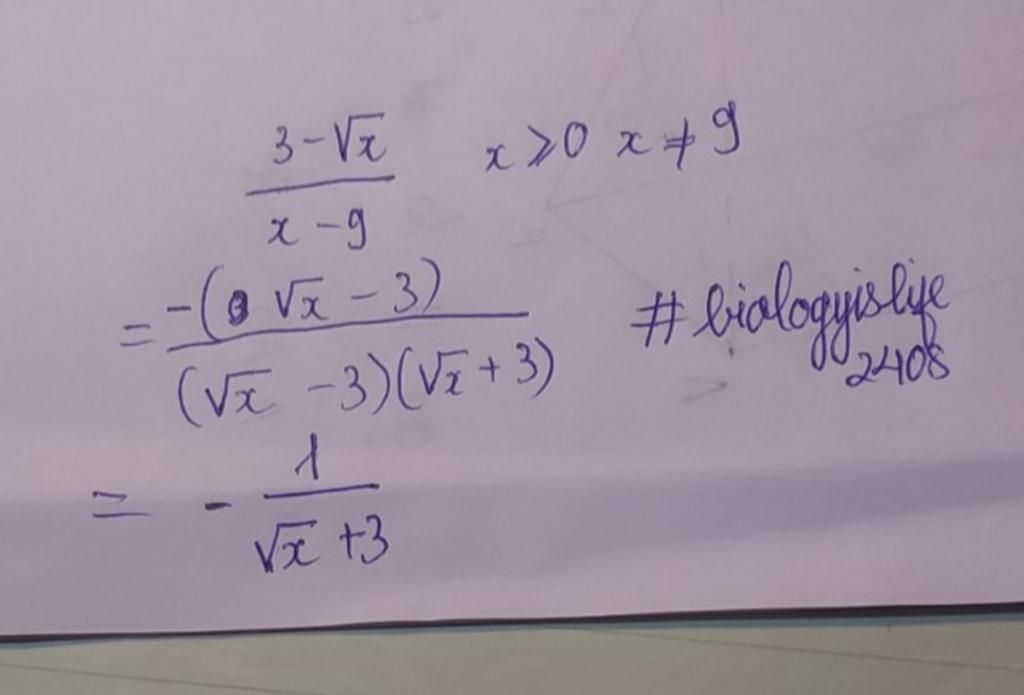 3-√x / x-9   x ⩾ 0 x ≠ 9
= -(√x - 3) / (√x - 3)(√x + 3)
#biologyislife
2408
= - 1 / √x + 3